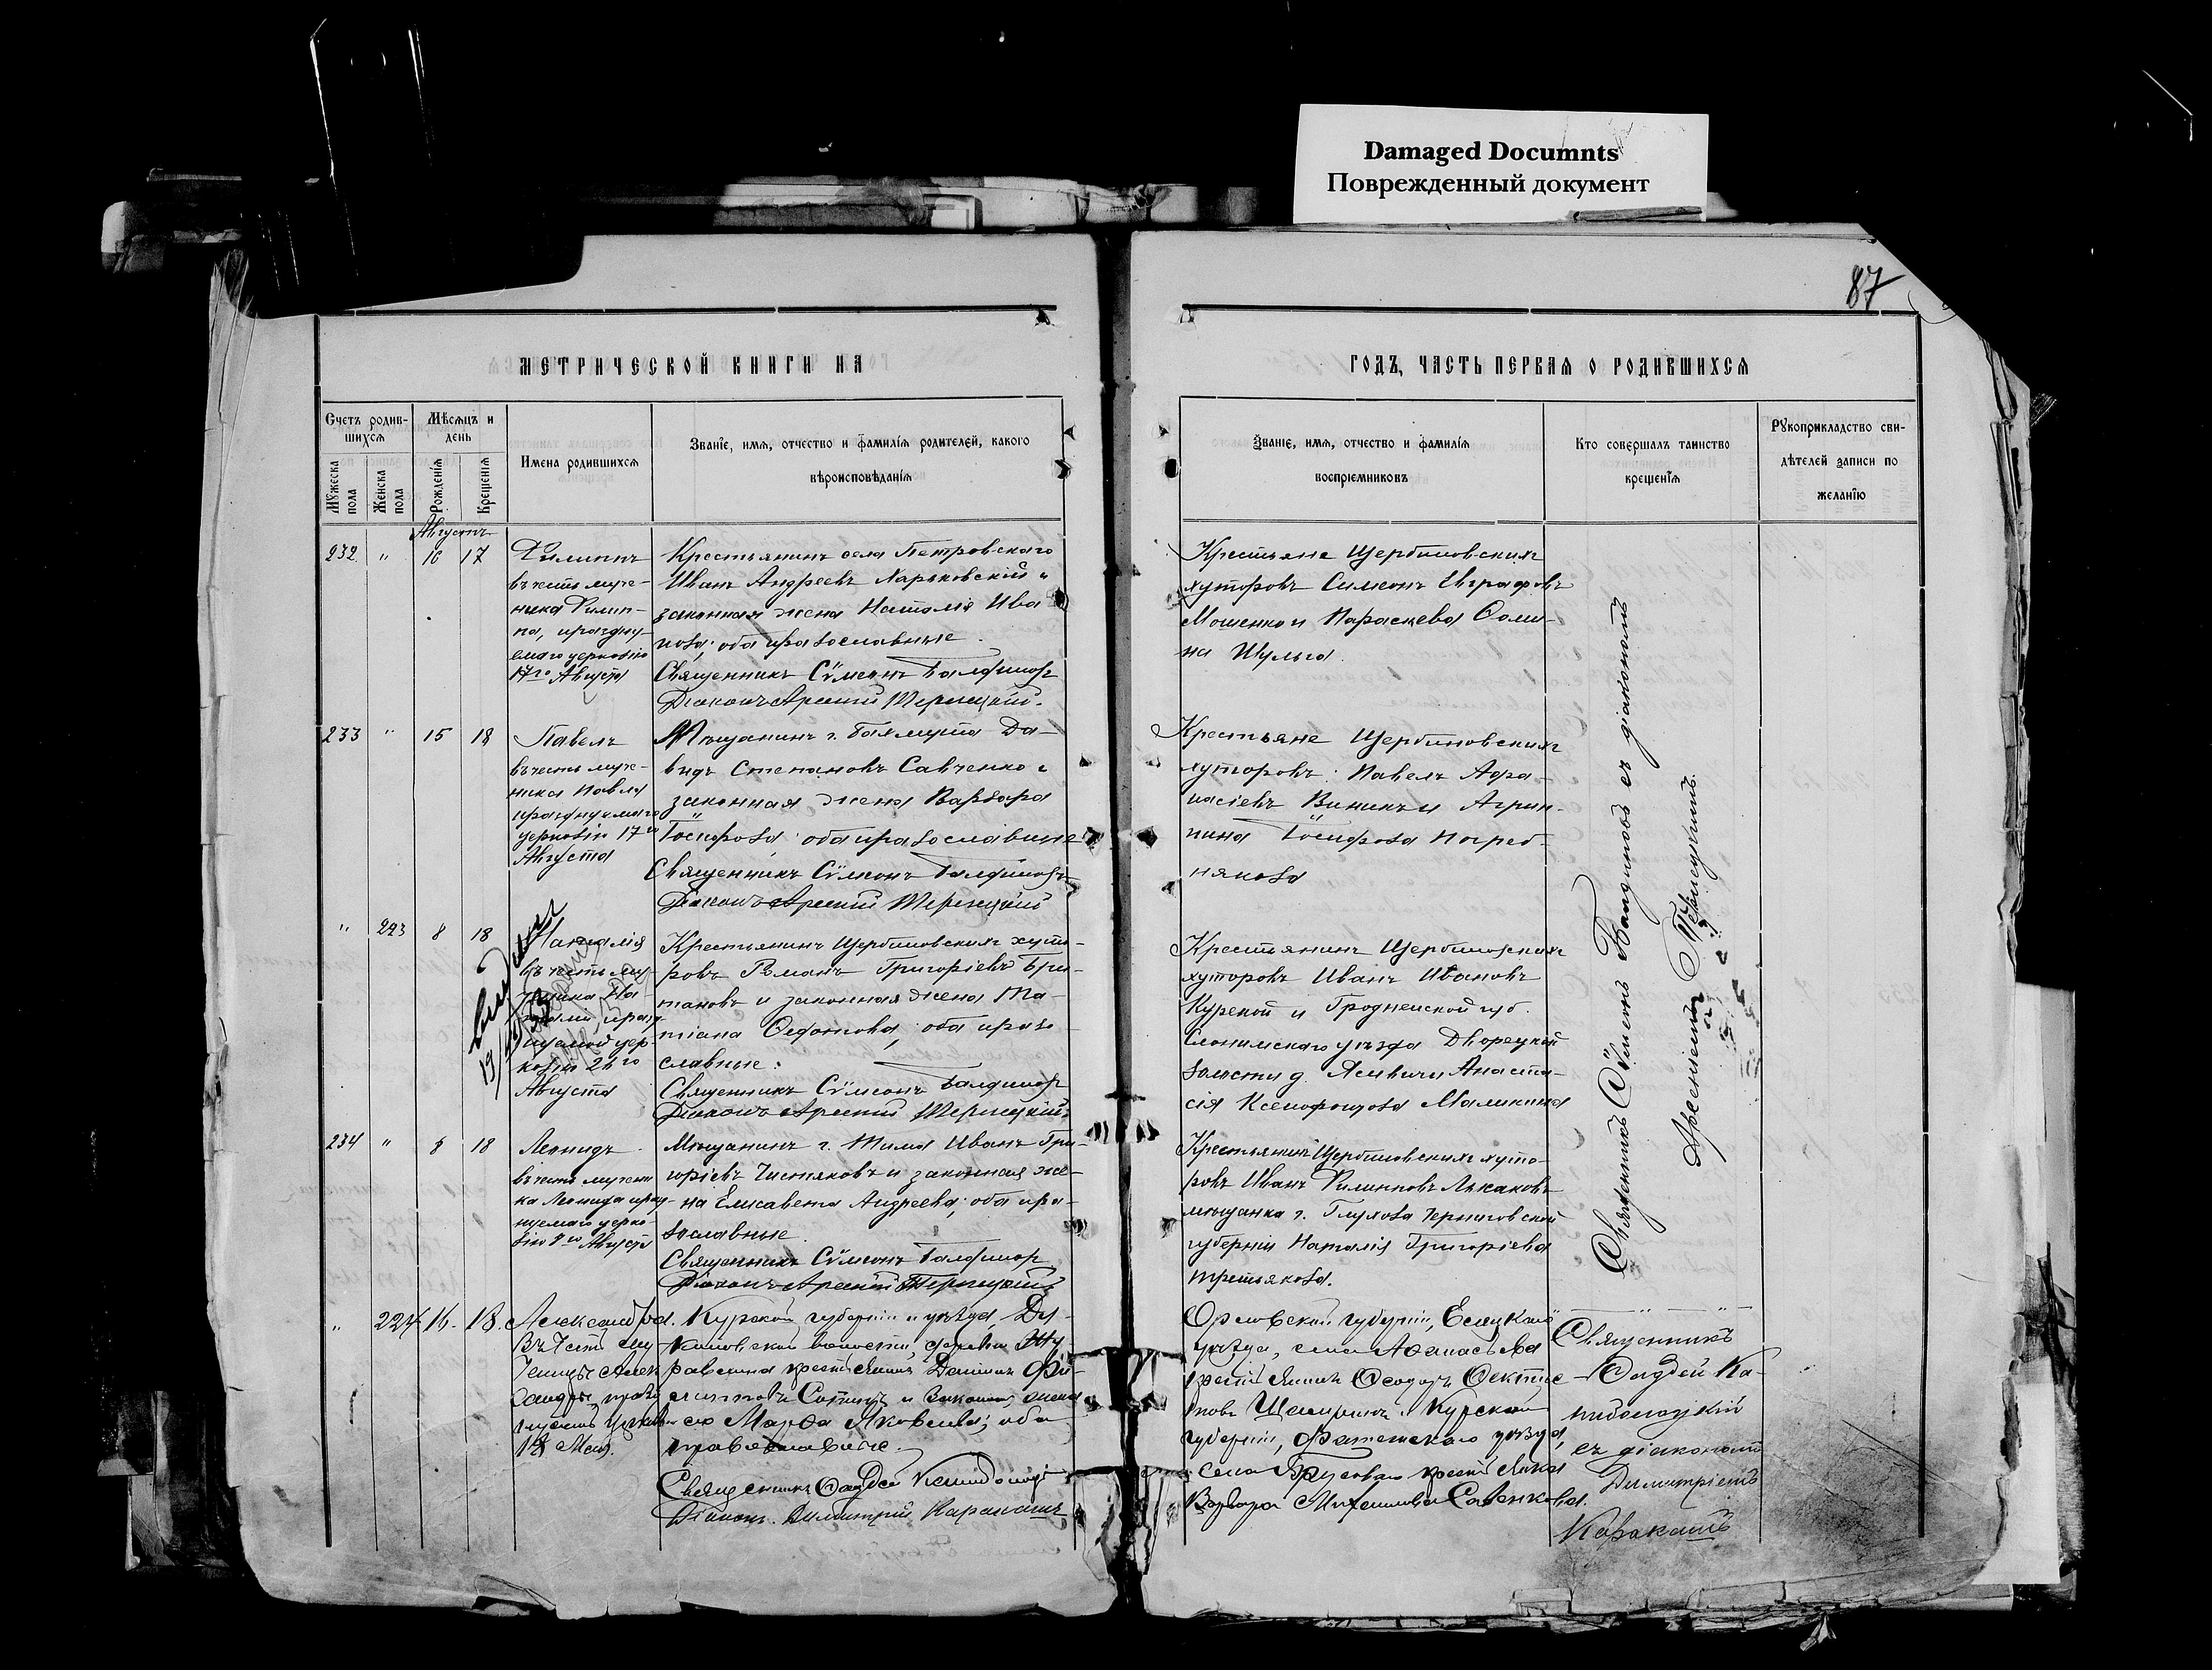 Damaged Documnts
Поврежденный документ
87
МЕТРИЧЕСКОЙ КНИГИ НА
ГОДЪ, ЧАСТЬ ПЕРВАЯ О РОДИВШИХСЯ
Счетъ родив-
шихся
Мужеска пола
Женска пола
Мѣсяцъ и
день
Рожденія
Крещенія
Имена родившихся
Званіе, имя, отчество и фамилія родителей, какого
вѣроисповѣданія
Званіе, имя, отчество и фамилія
воспріемниковъ
Кто совершалъ таинство
крещенія
Рукоприкладство сви-
дѣтелей записи по
желанію
Августъ
232 " 16 17
Филиппъ
въ честь муче-
ника Филип-
па, праздну-
емаго церковію
17го Августа
Крестьянинъ села Петровскаго
Иванъ Андреевъ Харьковскій и
законная жена Наталія Ива-
нова; оба православные.
Священникъ Сѵмеонъ
Діаконъ Арсеній
Крестьяне Щербиновскихъ
хуторовъ Симеонъ Евграфовъ
Мошенко и Параскева Ѳоми-
на Шульга.
233 " 15 18
Павелъ
въ честь муче-
ника Павла
празднуемаго
церковію 17го
Августа
Мѣщанинъ г. Бахмута Да-
видъ Степановъ Савченко и
законная жена Варвара
Іосифова; оба православные
Священникъ Сѵмеонъ
Діаконъ Арсеній
Крестьяне Щербиновскихъ
хуторовъ: Павелъ Аѳа-
насіевъ Винникъ и Агрип-
пина Іосифова Погреб-
някова
" 223 8 18
Наталія
въ честь му-
ченика На-
таліи празд-
нуемой цер-
ковію 26го
Августа
Крестьянинъ Щербиновскихъ хуто-
ровъ Романъ Григоріевъ Бри-
тановъ и законная жена Та-
тіана Ѳедотова; оба право-
славные:
Священникъ Сѵмеонъ
Діаконъ Арсеній
Крестьянинъ Щербиновскихъ
хуторовъ Иванъ Ивановъ
Курской и Гродненской губ.
Слонимскаго уѣзда Дворецкой
волости д. Анаста-
сія Ксенофонтова Маликина
234 " 8 18
Леонидъ
въ честь мучени-
ка Леонида празд-
нуемаго церко-
вію 8го Августа
Мѣщанинъ г. Тима Иванъ Гри-
горіевъ Чистяковъ и законная же-
на Елисавета Андреева; оба пра-
вославные.
Священникъ Сѵмеонъ
Діаконъ Арсеній
Крестьянинъ Щербиновскихъ хуто-
ровъ Иванъ Филипповъ
мѣщанка г. Глухова Черниговской
губерніи Наталія Григоріева
Третьякова.
Священникъ Сѵмеонъ съ діакономъ
Арсеніемъ
" 224 16. 18.
Александра.
Въ честь му-
ченицы Алек-
сандры, празд-
нуемой церков.
18 Мая.
Курской губерніи и уѣзда,
волости, деревни Жу-
равлина крестьянинъ Даніилъ Фи-
липповъ и законная жена
его Марѳа Яковлева; оба
православные.
Священникъ Ѳаддей
Діаконъ Димитрій Каракашъ
Орловской губерніи, Елецкаго
уѣзда, села Аѳанасьева
крестьянинъ Ѳеодоръ
и Курской
губерніи, Фатежскаго уѣзда,
села крестьянка
Варвара Михаилова Савенкова.
Священникъ
Ѳаддей Ка-
съ діакономъ
Димитріемъ
Каракашъ